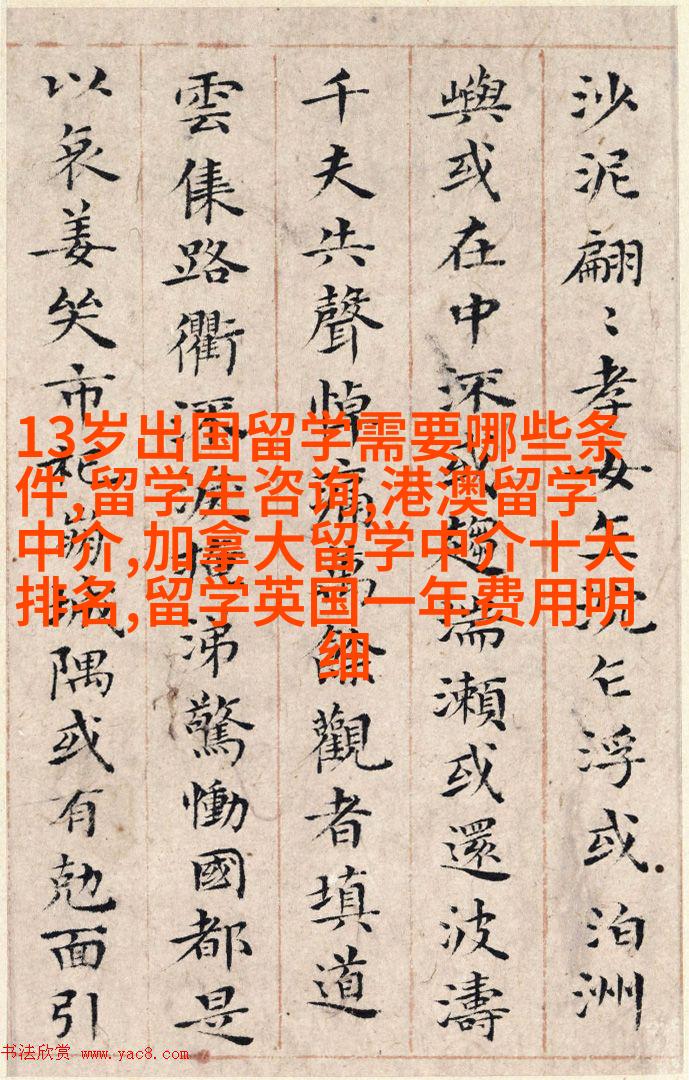 沙泥翩〻孝女乍沉乍浮或泊洲
嶼或在中流或趨湍瀨或還波濤
千夫共聲悼痛萬餘觀者填道
雲集路衢流淚掩涕驚慟國都是
以哀姜哭市杞崩城隅或有尅面引
13岁出国留学需要哪些条
件,留学生咨询,港澳留学
中介,加拿大留学中介十大
排名,留学英国一年费用明
细
书法欣赏 www.yac8.com